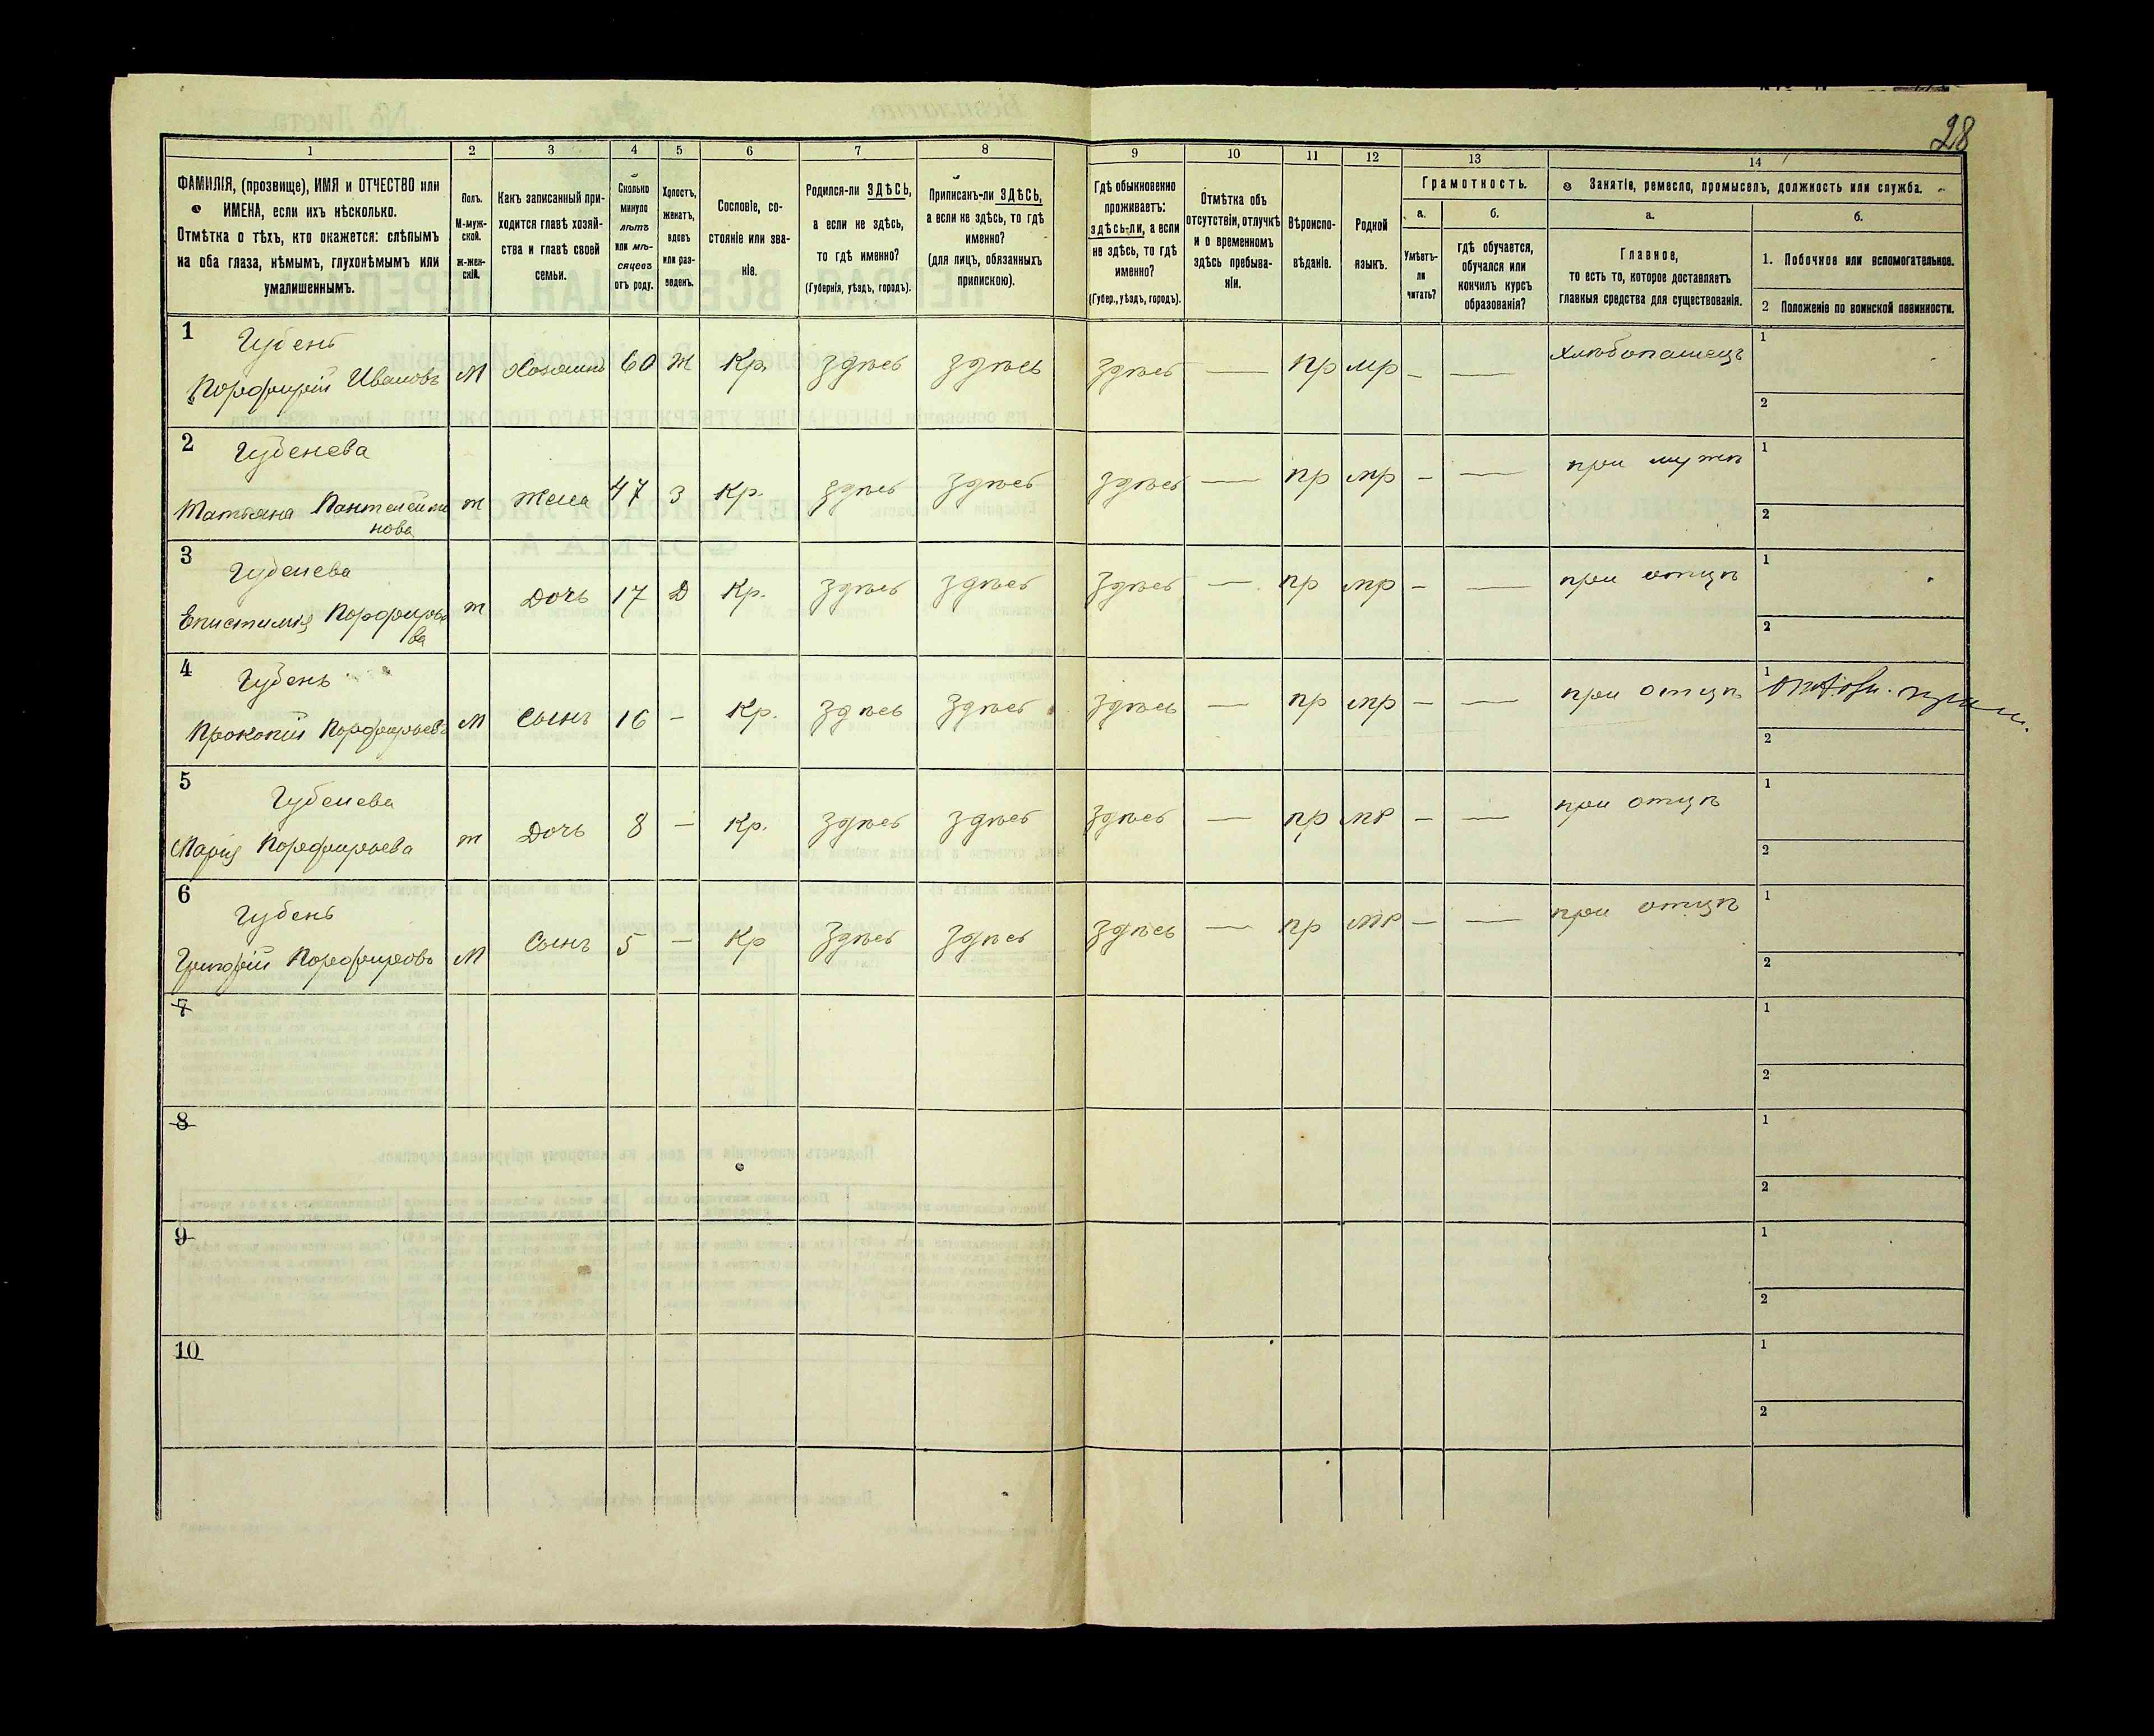 28
1 2 3 4 5 6 7 8 9 10 11 12 13 14
ФАМИЛІЯ, (прозвище), ИМЯ и ОТЧЕСТВО или
ИМЕНА, если ихъ нѣсколько.
Отмѣтка о тѣхъ, кто окажется: слѣпымъ
на оба глаза, нѣмымъ, глухонѣмымъ или
умалишеннымъ.
Полъ.
М-муж-
ской.
ж-жен-
скій.
Какъ записанный при-
ходится главѣ хозяй-
ства и главѣ своей
семьи.
Сколько
минуло
лѣтъ
или мѣ-
сяцевъ
отъ роду.
Холостъ,
женатъ,
вдовъ
или раз-
веденъ.
Сословіе, со-
стояніе или зва-
ніе.
Родился-ли ЗДѢСЬ,
а если не здѣсь,
то гдѣ именно?
(Губернія, уѣздъ, городъ).
Приписанъ-ли ЗДѢСЬ,
а если не здѣсь, то гдѣ
именно?
(для лицъ, обязанныхъ
припискою).
Гдѣ обыкновенно
проживаетъ:
здѣсь-ли, а если
не здѣсь, то гдѣ
именно?
(Губер., уѣздъ, городъ).
Отмѣтка объ
отсутствіи, отлучкѣ
и о временномъ
здѣсь пребыва-
ніи.
Вѣроиспо-
вѣданіе.
Родной
языкъ.
Грамотность.
а.
Умѣетъ-
ли
читать?
б.
гдѣ обучается,
обучался или
кончилъ курсъ
образованія?
Занятіе, ремесло, промыселъ, должность или служба.
а.
Главное,
то есть то, которое доставляетъ
главныя средства для существованія.
б.
1. Побочное или вспомогательное.
2 Положеніе по воинской повинности.
1 Губень
Порфирій Ивановъ М Хозяинъ 60 Ж Кр. здѣсь здѣсь здѣсь — пр мр — — хлѣбопашецъ 1
2
2 Губенева
Татьяна Пантелеймо
нова ж жена 47 З Кр. здѣсь здѣсь здѣсь — пр мр — — при мужѣ 1
2
3 Губенева
Епистимія Порфирье
ва ж дочь 17 Д Кр. здѣсь здѣсь здѣсь — пр мр — — при отцѣ 1
2
4 Губень
Прокопій Порфирьевъ М сынъ 16 — Кр. здѣсь здѣсь здѣсь — пр мр — — при отцѣ 1
2
5 Губенева
Марія Порфирьева ж дочь 8 — Кр. здѣсь здѣсь здѣсь — пр мр — — при отцѣ 1
2
6 Губень
Григорій Порфировъ М сынъ 5 — Кр здѣсь здѣсь здѣсь — пр мр — — при отцѣ 1
2
7 1
2
8 1
2
9 1
2
10 1
2